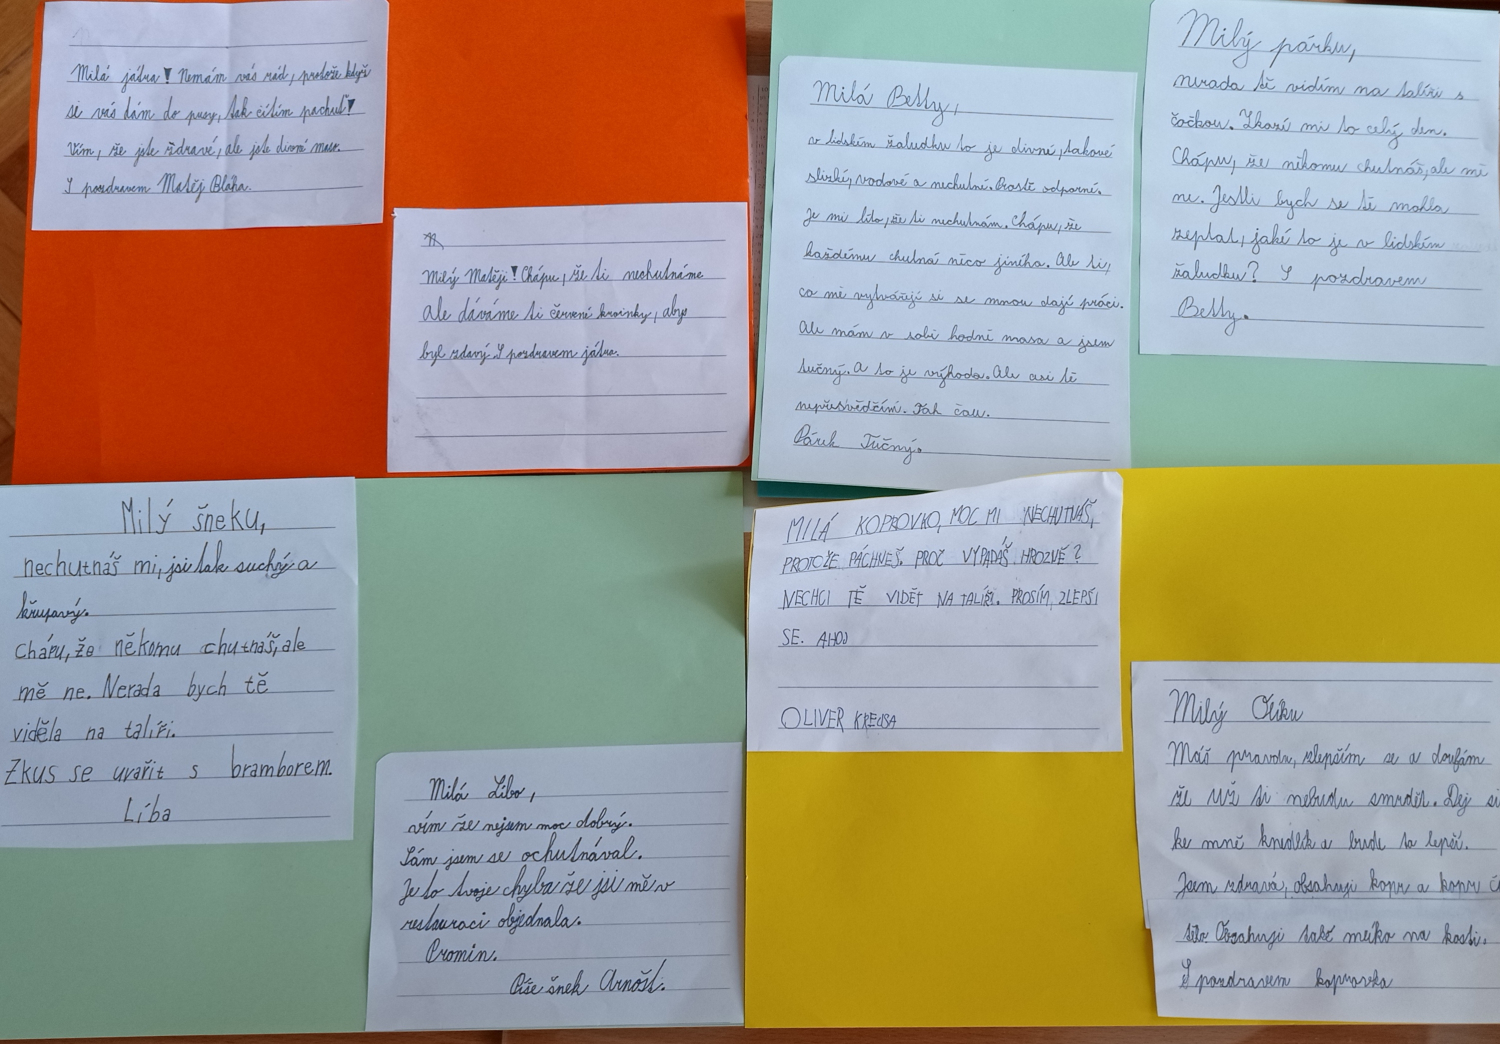 Milá játra! Nemám vás rád, protože když
si vás dám do pusy, tak cítím pachuť!
Vím, že jste zdravé, ale jste divné maso.
S pozdravem Matěj Bláha.
Milý Matěji! Chápu, že ti nechutnáme
Ale dáváme ti červené krvinky, abys
byl zdavý. S pozdravem játra.
Milá Betty,
v lidském žaludku to je divné, takové
slizké, vodové a nechutné. Prostě odporné.
Je mi líto, že ti nechutnám. Chápu, že
každému chutná něco jiného. Ale ti,
co mě vytvářejí si se mnou dají práci.
Ale mám v sobě hodně masa a jsem
tučný. A to je výhoda. Ale asi tě
nepřesvědčím. Tak čau.
Párek Tučný.
Milý párku,
nerada tě vidím na talíři s
čočkou. Zkazí mi to celý den.
Chápu, že někomu chutnáš, ale mě
ne. Jestli bych se tě mohla
zeptat, jaké to je v lidském
žaludku? S pozdravem
Betty.
Milý šneku,
nechutnáš mi, jsi tak suchý a
křupavý.
Chápu, že někomu chutnáš, ale
mě ne. Nerada bych tě
viděla na talíři.
Zkus se uvařit s bramborem.
Líba
Milá Líbo,
vím že nejsem moc dobrý.
Sám jsem se ochutnával.
Je to tvoje chyba že jsi mě v
restauraci objednala.
Promin.
Píše šnek Arnošt.
MILÁ KOPROVKO, MOC MI NECHUTNÁŠ,
PROTOŽE PÁCHNEŠ. PROČ VYPADÁŠ HROZNĚ?
NECHCI TĚ VIDĚT NA TALÍŘI. PROSÍM, ZLEPŠI
SE. AHOJ
OLIVER
Milý Olíku
Máš pravdu, zlepším se a doufám
že už ti nebudu smrdět. Dej si
ke mně knedlík a bude to lepší.
Jsem zdravá, obsahuji kopr a kopr
Obsahuji také mlíko na kosti.
S pozdravem koprovka